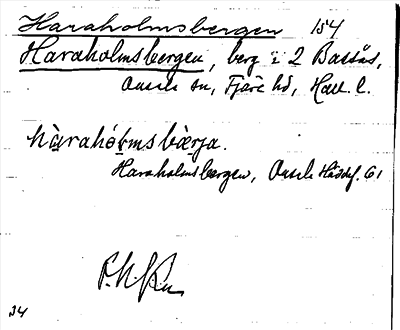 Haraholmsbergen 154
Haraholmsbergen, berg i 2 Bassås,
Onsala sn, Fjäre hd, Hall. l.
hàrahó̀lmsbæ̀rja.
Haraholmsbergen, Onsala Häddef. 61
34